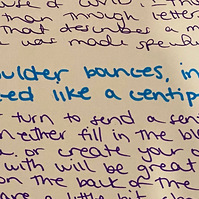 than through letters
that describes a m
was made specifi
oulder bounces, in
ed like a centip
turn to send a sen
either fill in the bl
or create your o
with will be great
on the back of the
are a little bit